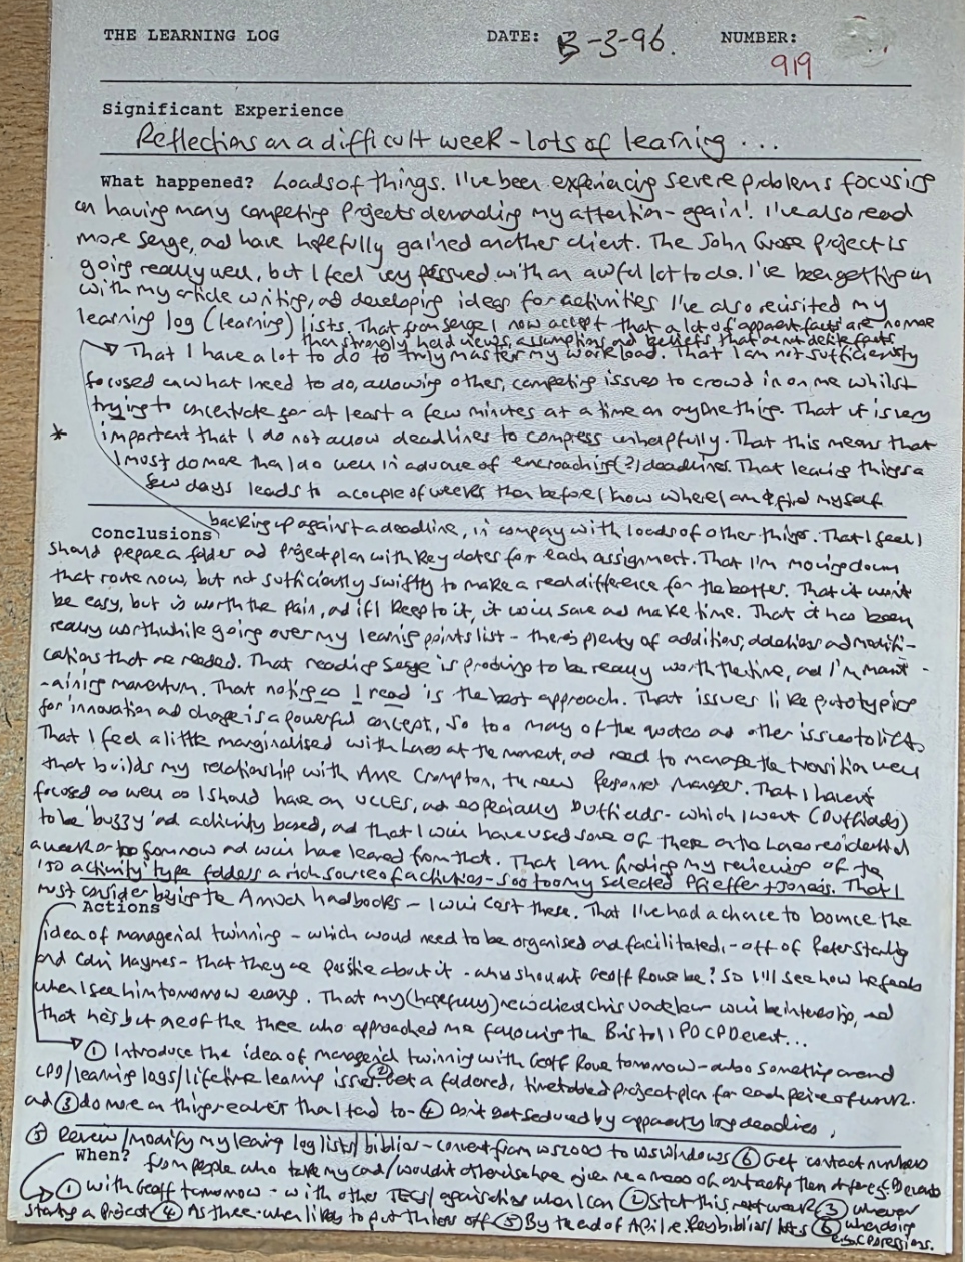 THE LEARNING LOG DATE: 3-3-96. NUMBER:
919
Significant Experience
Reflections on a difficult week - lots of learning ...
What happened? Loads of things. I've been experiencing severe problems focusing
on having many competing projects demanding my attention - again! I've also read
more Senge, and have hopefully gained another client. The John Grose project is
going really well, but I feel very pressured with an awful lot to do. I've been getting on
with my article writing, and developing ideas for activities. I've also revisited my
learning log (learning) lists. That from Senge I now accept that a lot of 'apparent facts' are no more
than strongly held views, assumptions and beliefs that are not definite facts
That I have a lot to do to truly master my workload. That I am not sufficiently
focused on what I need to do, allowing other, competing issues to crowd in on me whilst
trying to concentrate for at least a few minutes at a time on any one thing. That it is very
* important that I do not allow deadlines to compress unhelpfully. That this means that
I must do more than I do well in advance of encroaching(?) deadlines. That leaving things a
few days leads to a couple of weeks then before I know where I am & find myself
backing up against a deadline, in company with loads of other things. That I feel I
Conclusions
should prepare a folder and project plan with key dates for each assignment. That I'm moving down
that route now, but not sufficiently swiftly to make a real difference for the better. That it won't
be easy, but is worth the pain, and if I keep to it, it will save and make time. That it has been
really worthwhile going over my learning points list - there's plenty of additions, deletions and modifi-
cations that are needed. That reading Senge is proving to be really worth the time, and I'm maint-
-aining momentum. That noting as I read is the best approach. That issues like prototyping
for innovation and change is a powerful concept, so too many of the quotes and other issues to list.
That I feel a little marginalised with at the moment, and need to manage the transition well
that builds my relationship with Anne Crompton, the new Personnel Manager. That I haven't
focused as well as I should have on UCLES, and especially Duffields - which I want (Duffields)
to be 'buzzy' and activity based, and that I will have used some of these on the residential
a week or two from now and will have learned from that. That I am finding my reviewing of the
'50 activity' type folders a rich source of activities - so too my selected Pfeiffer + Jones's. That I
must consider buying the handbooks - I will cost these. That I've had a chance to bounce the
Actions
idea of managerial twinning - which would need to be organised and facilitated, - off of Peter
and Colin Haynes - that they are positive about it - why shouldn't Geoff Rowe be? So I'll see how he feels
when I see him tomorrow evening. That my (hopefully) new client Chris will be interesting, and
that he's but one of the three who approached me following the Bristol IPD CPD event...
① Introduce the idea of managerial twinning with Geoff Rowe tomorrow - also something around
CPD/learning logs/lifetime learning issues ② Get a foldered, timetabled project plan for each piece of work.
and ③ do more on things earlier than I tend to - ④ Don't get seduced by apparently long deadlines,
⑤ Review/modify my learning log lists/biblios - convert from WS2000 to WS Windows ⑥ Get contact numbers
When? from people who take my card/wouldn't otherwise have given me a means of contacting them after events
① With Geoff tomorrow - with other TECs/organisations when I can ② Start this, next week ③ whenever
starting a project ④ As three - when likely to put things off ⑤ By the end of April re. key biblios/lists ⑥ when doing
e.g. CPD sessions.